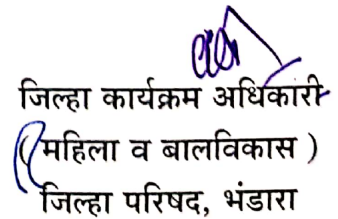 जिल्हा कार्यक्रम अधिकारी
( महिला व बालविकास )
जिल्हा परिषद, भंडारा